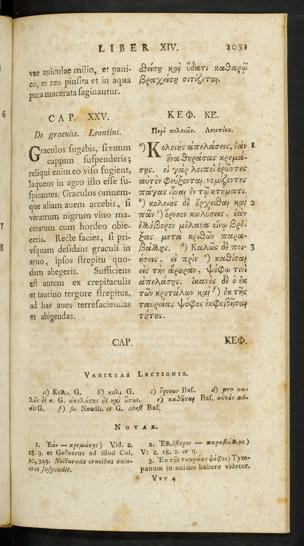 LIBER XIV. 1031
vae aviculae milio, et pani-
co, et zea pinsita et in aqua
pura macerata saginantur.
CAP. XXV.
De graculis. Leontini.
Graculos fugabis, si vnum
captum suspenderis;
reliqui enim eo viso fugient,
laqueos in agro isto esse su-
spicantes. Graculos omnem-
que aliam auem arcebis, si
veratrum nigrum vino ma-
ceratum cum hordeo obie-
ceris. Recte facies, si pri-
vsquam desidant graculi in
aruo, ipsos strepitu quo-
dam abegeris. Sufficiens
est autem ex crepitaculis
et taurino tergore strepitus,
ad has aues terrefaciendas
et abigendas.
CAP.
θείσῃ καὶ ὕδατι καθαρῷ
βραχείσῃ σιτίζεται.
ΚΕΦ. ΚΕ.
Περὶ κολοιῶν. Λεοντίνου.
Κολοιοὺς ἀπελάσεις, ἐὰν 1
ἕνα θηράσας κρεμά-
σῃς. οἱ γὰρ λοιποὶ ὁρῶντες
αὐτὸν φεύξονται, νομίζοντες
παγίδας εἶναι ἐν τῷ κτήματι.
κολοιοὺς δὲ ἔρχεσθαι καὶ 2
πᾶν ὄρνεον κωλύσεις, ἐὰν
ἐλλέβορον μέλανα οἴνῳ βρέ-
ξας μετὰ κριθῶν παρα-
βάλῃς. Καλῶς δὲ ποι- 3
ήσεις, εἰ πρὶν καθίσαι
εἰς τὴν ἄρουραν, ψόφῳ τινὶ
ἀπελάσῃς. ἱκανὸς δὲ ὁ ἐκ
τῶν κροτάλων καὶ ἐκ τῆς
ταυρείας ψόφος ἐκφοβῆσαι
τούτους.
ΚΕΦ.
VARIETAS LECTIONIS.
NOTAE.
1. Ἐὰν — κρεμάσῃς) Vid. 2.
18. 9. et Gesnerus ad illud Col.
10, 329. Nocturnas crucibus volu-
cres suspendit.
2. Ἐλλέβορον — παραβάλῃς)
Vt 2. 18. 2. et 9.
3. Ἐκ τῆς ταυρείας ψόφος) Tym-
panum in animo habere videtur.
Vvv 4